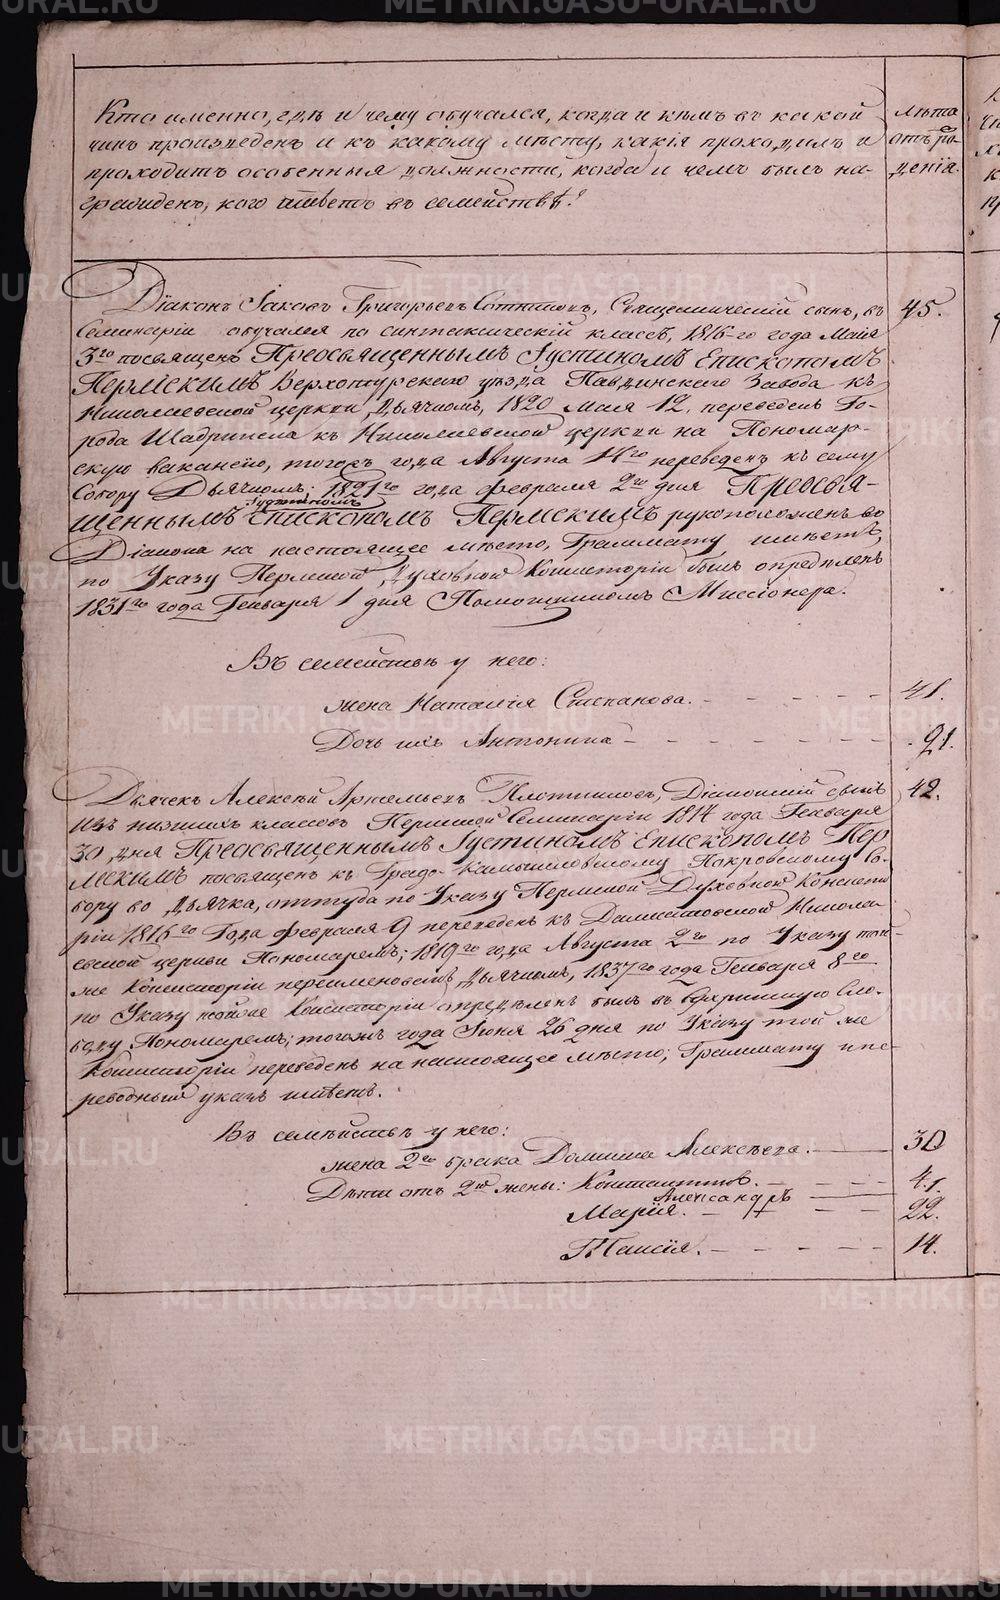 Кто именно, гдѣ и чему обучался, когда и кѣмъ въ какой
чинъ произведенъ и къ какому мѣсту, какія проходилъ и
проходитъ особенныя должности, когда и чемъ былъ на-
гражденъ, кого имѣетъ въ семействѣ?
лѣта
отъ ро-
денія.
Діаконъ Іаковъ Григорьевъ Священническій сынъ, въ
Семинаріи обучался по синтаксическій классъ, 1816-го года Маія
3го посвященъ Преосвященнымъ Іустиномъ Епископомъ
Пермскимъ Верхотурскаго уѣзда Павдинскаго Завода къ
Николаевской церкви Дьячкомъ, 1820 Маія 12, переведенъ Го-
рода Шадринска къ Николаевской церкви на Пономар-
скую вакансію, тогожъ года Августа переведенъ къ сему
Собору Дьячкомъ; 1821го года февраля 2го дня Преосвя-
Іустиномъ
щеннымъ Епископомъ Пермскимъ рукоположенъ во
Діакона на настоящее мѣсто, Граммату имѣетъ,
по Указу Пермской Духовной Консисторіи былъ опредѣленъ
1831го года Генваря 1 дня Помощникомъ Миссіонера.
45.
Въ семействѣ у него:
жена Наталія Степанова. 41.
Дочь ихъ Антонина 21.
Дьячекъ Алексѣй Арсеньевъ Плотниковъ, Діаконскій сынъ 42.
Изъ низшихъ классовъ Пермской Семинаріи 1814 года Генваря
30 дня Преосвященнымъ Іустиномъ Епископомъ Пер
мскимъ посвященъ къ Градо-Камышловскому Покровскому Со-
бору во Дьячка, оттуда по Указу Пермской Духовной Консисто
ріи 1816го Года февраля 9 переведенъ къ Далматовской Никола-
евской церкви Пономаремъ; 1819го года Августа 2го по Указу той-
же Консисторіи переименованъ Дьячкомъ, 1837го года Генваря 8го
по Указу тойже Консисторіи опредѣленъ былъ въ Сло-
боду Пономаремъ; тогожъ года Іюня 26 дня по Указу той же
Консисторіи переведенъ на настоящее мѣсто; Граммату и пе-
реводный указъ имѣетъ.
Въ семействѣ у него:
жена 2го брака Домника Алексѣева. 30
Дѣти отъ 2й жены: Константинъ. 4.
Александръ 1.
Марія. 22.
Таисія. 14.
METRIKI.GASO-URAL.RU